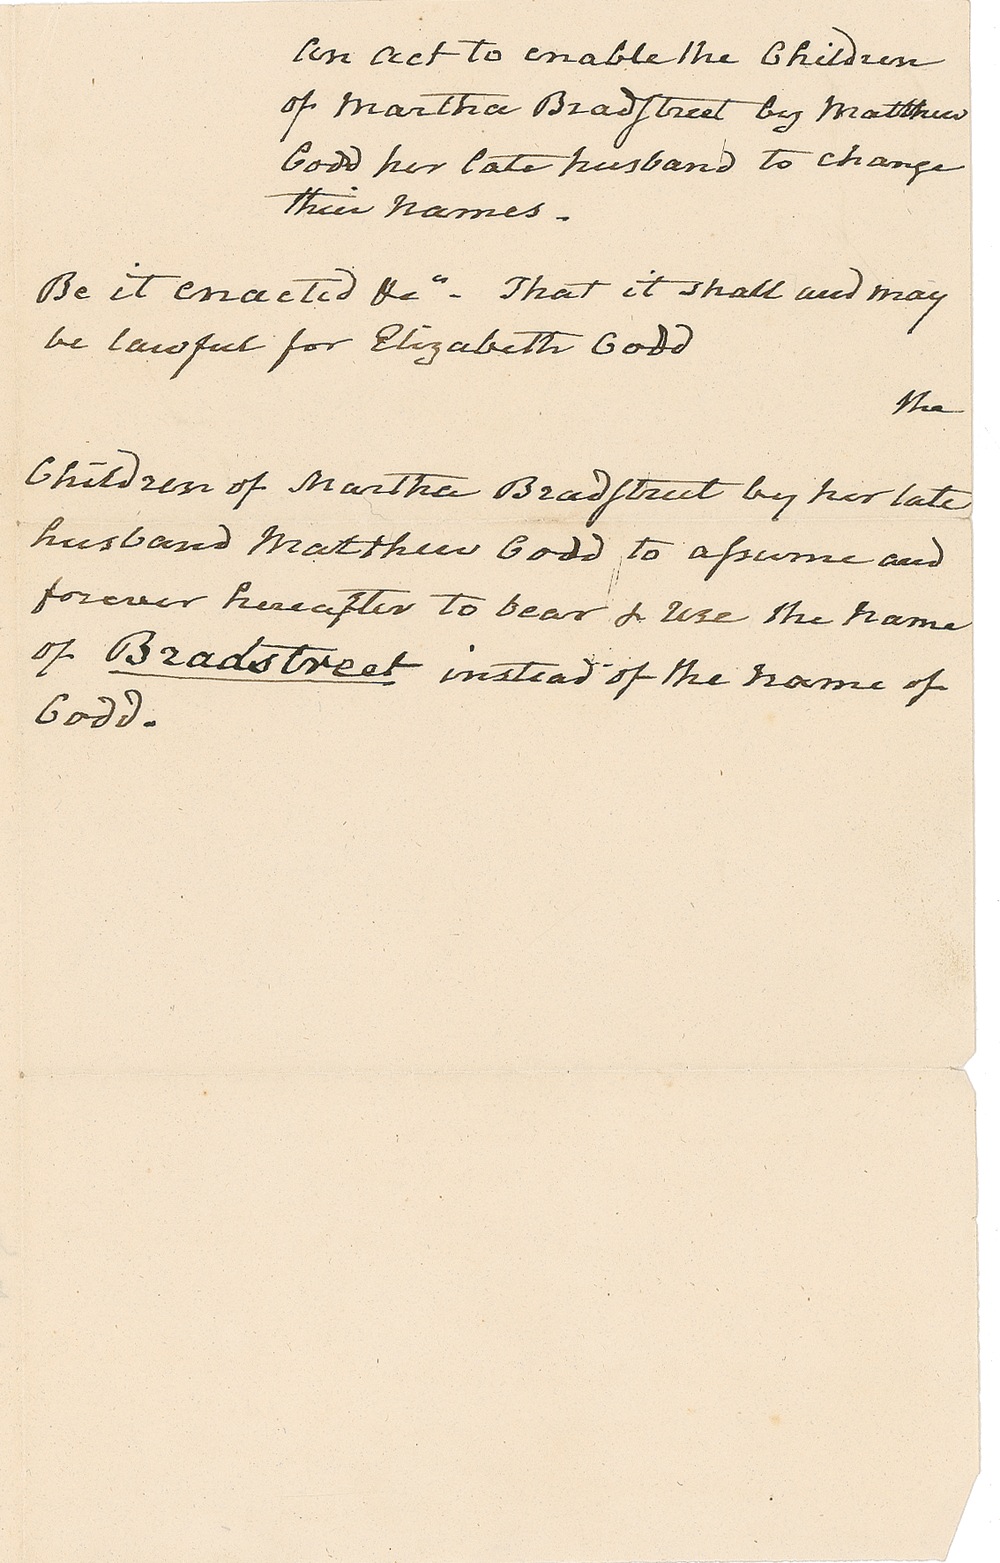 An act to enable the Children
of Martha Bradstreet by Matthew
Codd her late husband to change
their names.
Be it enacted &ca. That it shall and may
be lawful for Elizabeth Codd
the
Children of Martha Bradstreet by her late
husband Matthew Codd to assume and
forever hereafter to bear & use the name
of Bradstreet instead of the name of
Codd.